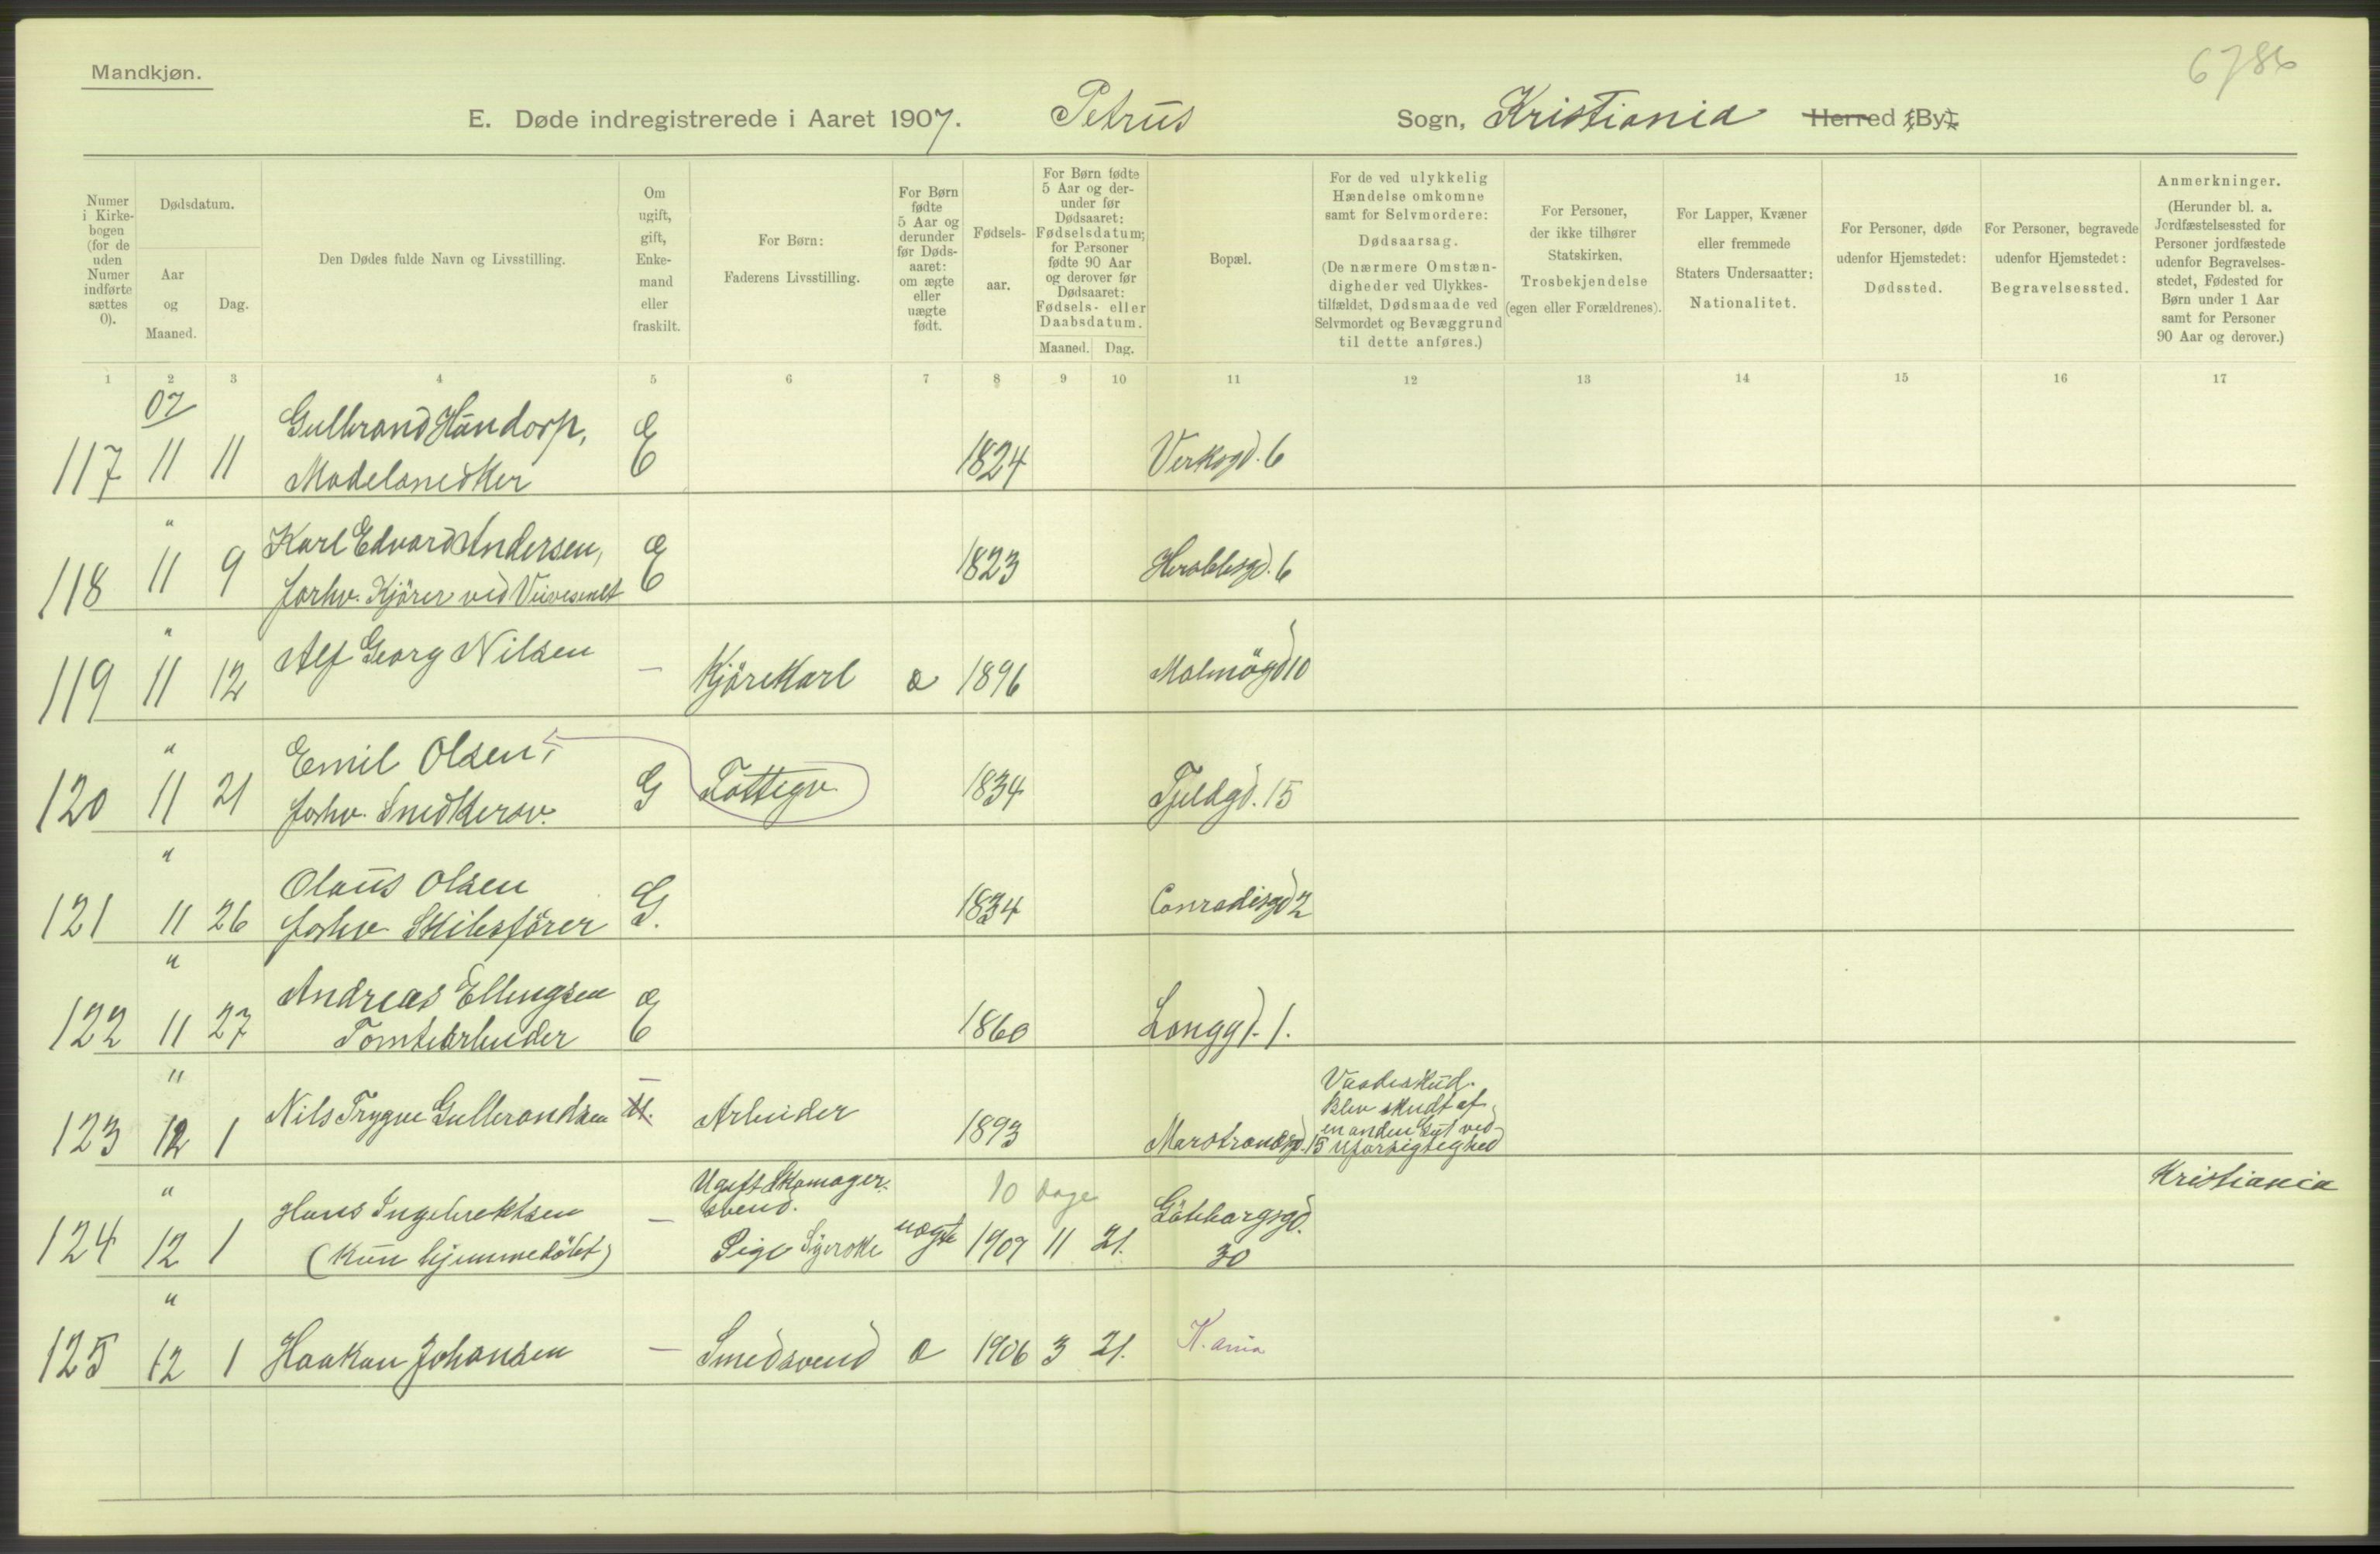 Mandkjøn.
6786
E. Døde indregistrerede i Aaret 1907. Petrus Sogn, Kristiania Herred (By).
Numer i Kirkebogen (for de uden Numer indførte sættes 0).
Dødsdatum.
Aar og Maaned.
Dag.
Den Dødes fulde Navn og Livsstilling.
Om ugift, gift, Enkemand eller fraskilt.
For Børn: Faderens Livsstilling.
For Børn fødte 5 Aar og derunder før Dødsaaret: om ægte eller uægte født.
Fødselsaar.
For Børn fødte 5 Aar og derunder før Dødsaaret: Fødselsdatum; for Personer fødte 90 Aar og derover før Dødsaaret: Fødsels- eller Daabsdatum.
Maaned. Dag.
Bopæl.
For de ved ulykkelig Hændelse omkomne samt for Selvmordere: Dødsaarsag. (De nærmere Omstændigheder ved Ulykkestilfældet, Dødsmaade ved Selvmordet og Bevæggrund til dette anføres.)
For Personer, der ikke tilhører Statskirken, Trosbekjendelse (egen eller Forældrenes).
For Lapper, Kvæner eller fremmede Staters Undersaatter: Nationalitet.
For Personer, døde udenfor Hjemstedet: Dødssted.
For Personer, begravede udenfor Hjemstedet: Begravelsessted.
Anmerkninger. (Herunder bl. a. Jordfæstelsessted for Personer jordfæstede udenfor Begravelsesstedet, Fødested for Børn under 1 Aar samt for Personer 90 Aar og derover.)
1 2 3 4 5 6 7 8 9 10 11 12 13 14 15 16 17
07
Gulbrand Handorp,
117 11 11 Modelsnedker E 1824 Verksgd. 6
" Karl Edvard Andersen,
118 11 9 forhv. Kjörer ved Veivesenet E 1823 Heraldsgd. 6
" Alf Georg Nilsen
119 11 12 — Kjörekarl æ 1896 Malmögd 10
" Emil Olsen,
120 11 21 forhv. Snedkersv. G Fattigv. 1834 Tjeldgd. 15
" Olaus Olsen
121 11 26 forhv. Skibsförer G. 1834 Conradisgd 2
" Andreas Ellingsen
122 11 27 Tomtearbeider E 1860 Langgd. 1.
" —
123 12 1 Nils Trygve Gulbrandsen U. Arbeider 1893 Marstrandsgd. 15
Vaadeskud.
Blev skudt af
en anden Gut ved
Uforsigtighed
" Hans Ingebrektsen — Ugift Skomager-
svend. 10 dage Göteborgsgd. Kristiania
124 12 1 (Kun hjemmedöbt) Pige Syerske uægte 1907 11 21. 30
"
125 12 1 Haakon Johansen — Smedsvend æ 1906 3 21. K.ania